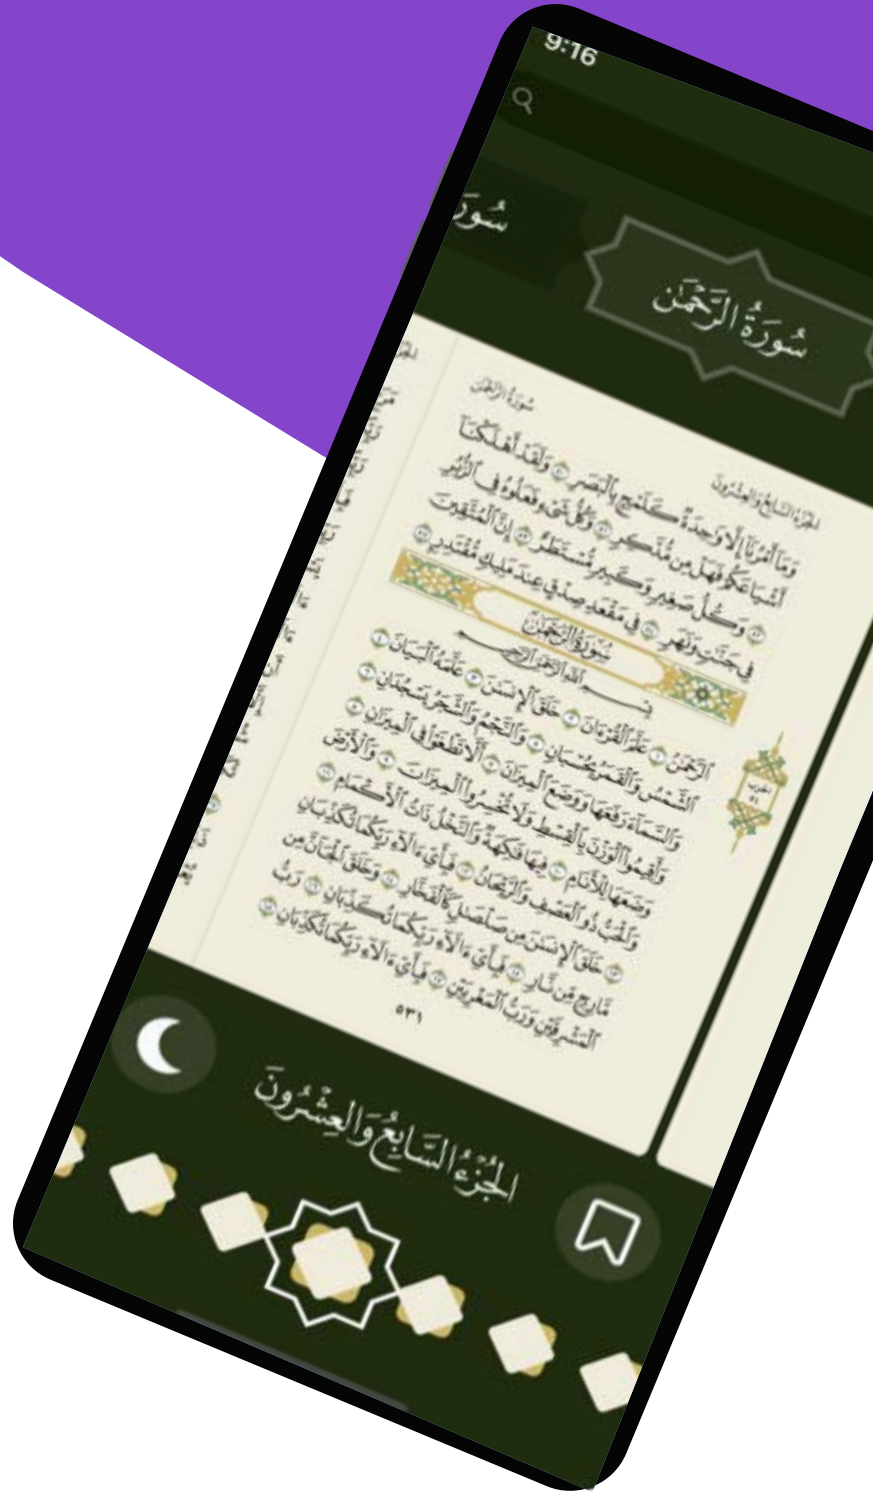 9:16
سُورَ
سُورَةُ الرَّحْمَٰن
سُورَةُ الرَّحْمَٰن
الجُزْءُ السَّابِعُ وَالعِشْرُونَ
وَمَآ أَمْرُنَآ إِلَّا وَٰحِدَةٌ كَلَمْحٍۭ بِٱلْبَصَرِ ٥٠ وَلَقَدْ أَهْلَكْنَآ
أَشْيَاعَكُمْ فَهَلْ مِن مُّدَّكِرٍ ٥١ وَكُلُّ شَىْءٍ فَعَلُوهُ فِى ٱلزُّبُرِ
٥٢ وَكُلُّ صَغِيرٍ وَكَبِيرٍ مُّسْتَطَرٌ ٥٣ إِنَّ ٱلْمُتَّقِينَ
فِى جَنَّٰتٍ وَنَهَرٍ ٥٤ فِى مَقْعَدِ صِدْقٍ عِندَ مَلِيكٍ مُّقْتَدِرٍۭ ٥٥
سُورَةُ الرَّحْمَٰن
بِسْمِ ٱللَّهِ ٱلرَّحْمَٰنِ ٱلرَّحِيمِ
ٱلرَّحْمَٰنُ ١ عَلَّمَ ٱلْقُرْءَانَ ٢ خَلَقَ ٱلْإِنسَٰنَ ٣ عَلَّمَهُ ٱلْبَيَانَ ٤
ٱلشَّمْسُ وَٱلْقَمَرُ بِحُسْبَانٍ ٥ وَٱلنَّجْمُ وَٱلشَّجَرُ يَسْجُدَانِ ٦
وَٱلسَّمَآءَ رَفَعَهَا وَوَضَعَ ٱلْمِيزَانَ ٧ أَلَّا تَطْغَوْا۟ فِى ٱلْمِيزَانِ ٨
وَأَقِيمُوا۟ ٱلْوَزْنَ بِٱلْقِسْطِ وَلَا تُخْسِرُوا۟ ٱلْمِيزَانَ ٩ وَٱلْأَرْضَ
وَضَعَهَا لِلْأَنَامِ ١٠ فِيهَا فَٰكِهَةٌ وَٱلنَّخْلُ ذَاتُ ٱلْأَكْمَامِ ١١
وَٱلْحَبُّ ذُو ٱلْعَصْفِ وَٱلرَّيْحَانُ ١٢ فَبِأَىِّ ءَالَآءِ رَبِّكُمَا تُكَذِّبَانِ
١٣ خَلَقَ ٱلْإِنسَٰنَ مِن صَلْصَٰلٍ كَٱلْفَخَّارِ ١٤ وَخَلَقَ ٱلْجَآنَّ مِن
مَّارِجٍ مِّن نَّارٍ ١٥ فَبِأَىِّ ءَالَآءِ رَبِّكُمَا تُكَذِّبَانِ ١٦ رَبُّ
ٱلْمَشْرِقَيْنِ وَرَبُّ ٱلْمَغْرِبَيْنِ ١٧ فَبِأَىِّ ءَالَآءِ رَبِّكُمَا تُكَذِّبَانِ ١٨
٥٣١
الجُزْءُ السَّابِعُ وَالعِشْرُونَ